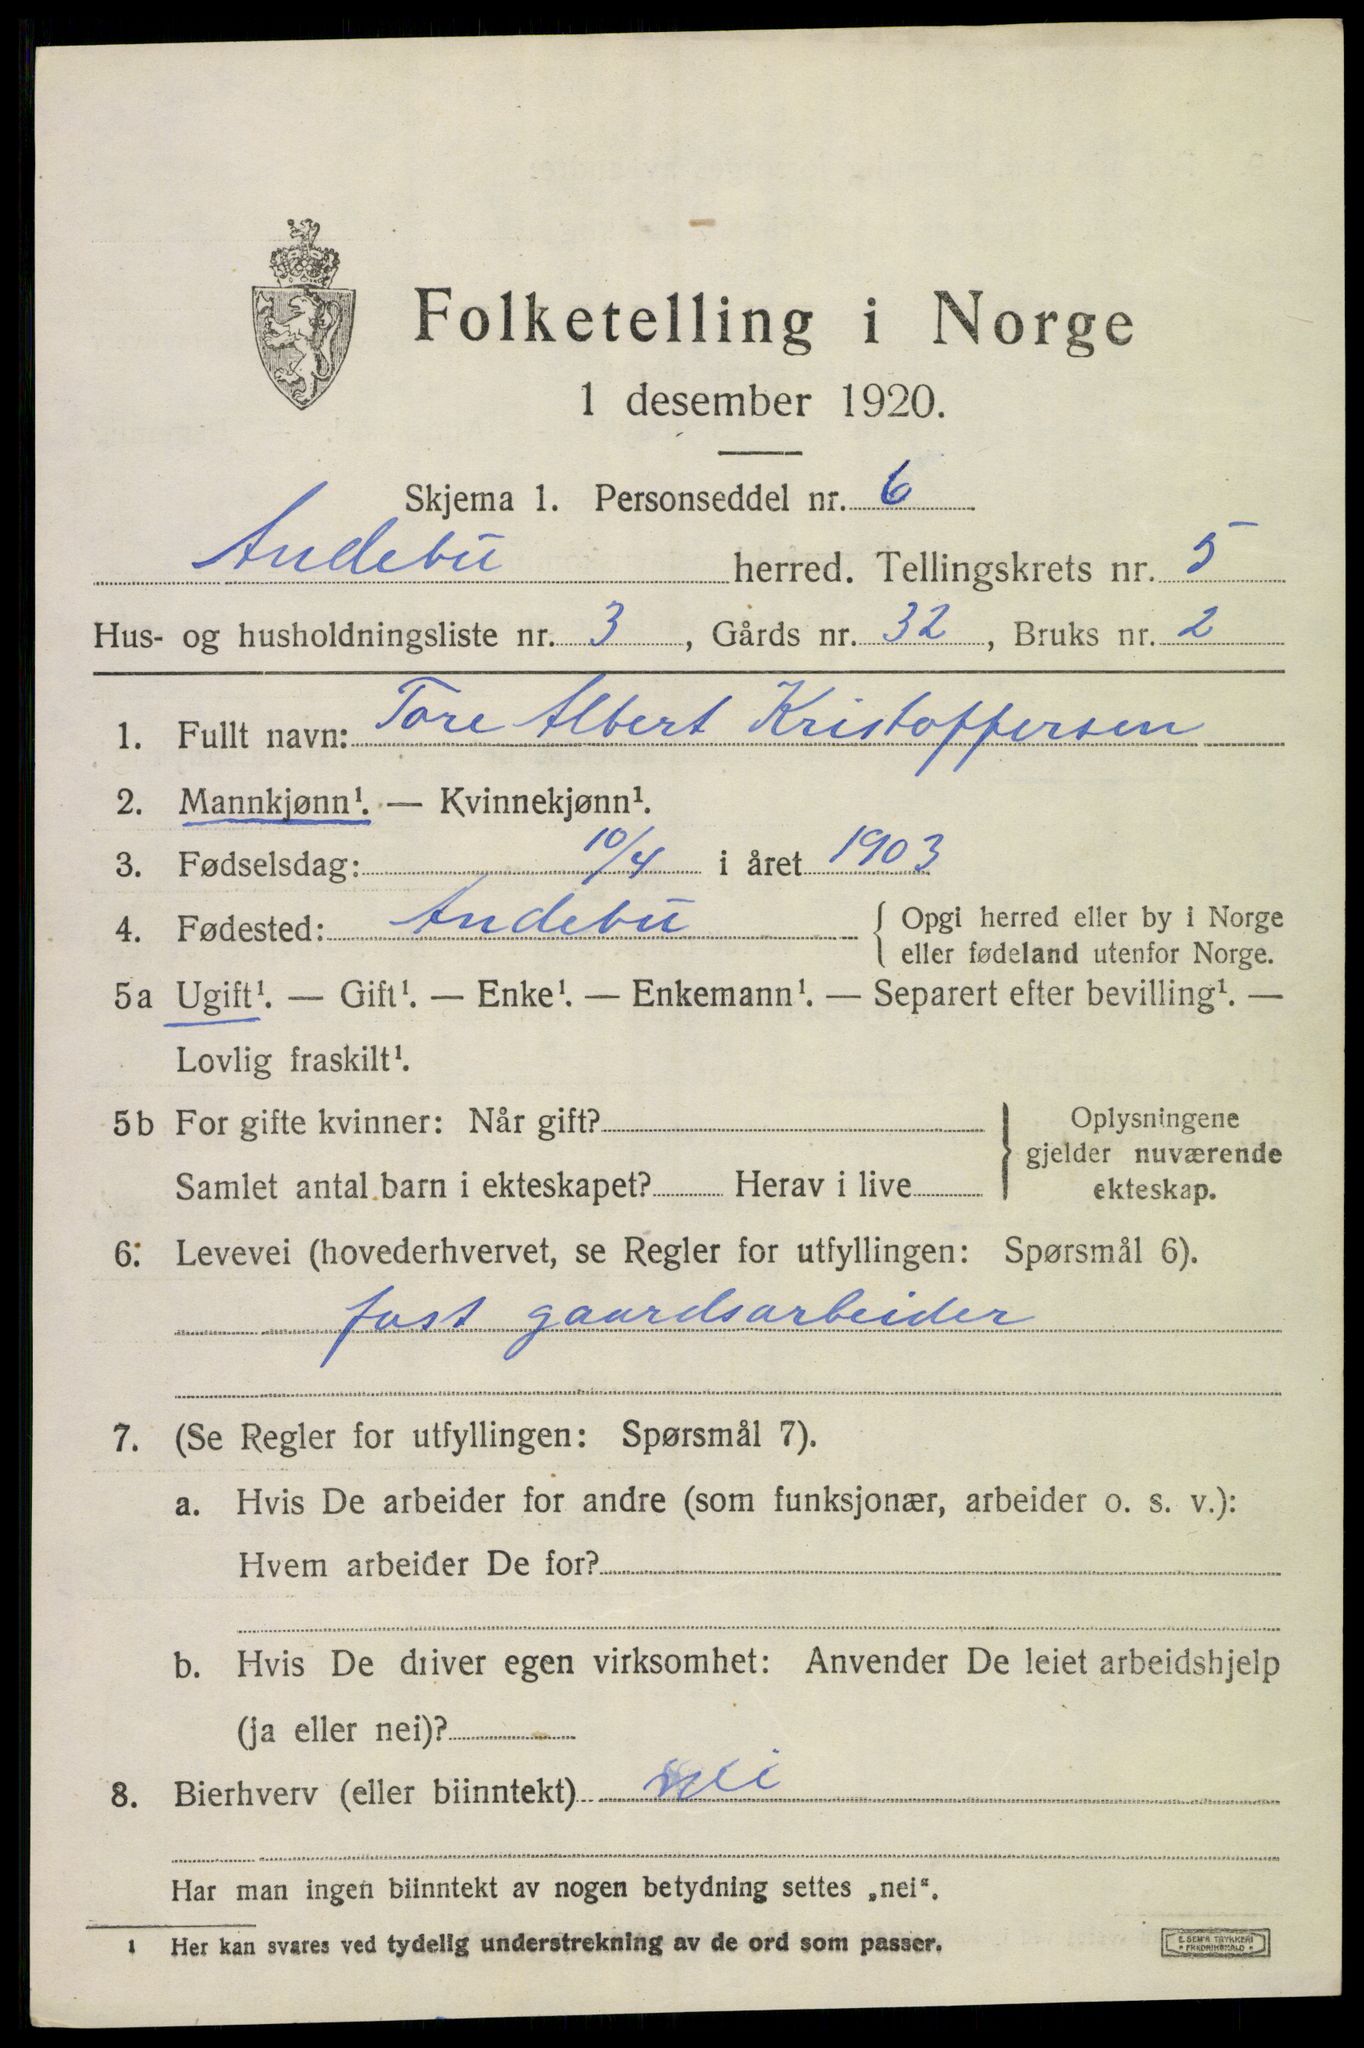 Folketelling i Norge
1 desember 1920.
Skjema 1. Personseddel nr. 6
Andebu herred. Tellingskrets nr. 5
Hus- og husholdningsliste nr. 3, Gårds nr. 32, Bruks nr. 2
1. Fullt navn: Tore Albert Kristoffersen
2. Mannkjønn¹. — Kvinnekjønn¹.
3. Fødselsdag: 10/4 i året 1903
4. Fødested: Andebu { Opgi herred eller by i Norge
eller fødeland utenfor Norge.
5a Ugift¹. — Gift¹. — Enke¹. — Enkemann¹. — Separert efter bevilling¹. —
Lovlig fraskilt¹.
5b For gifte kvinner: Når gift?
Samlet antal barn i ekteskapet? Herav i live
} Oplysningene
gjelder nuværende
ekteskap.
6. Levevei (hovederhvervet, se Regler for utfyllingen: Spørsmål 6).
fast gaardsarbeider
7. (Se Regler for utfyllingen: Spørsmål 7).
a. Hvis De arbeider for andre (som funksjonær, arbeider o. s. v.):
Hvem arbeider De for?
b. Hvis De driver egen virksomhet: Anvender De leiet arbeidshjelp
(ja eller nei)?
8. Bierhverv (eller biinntekt) nei
Har man ingen biinntekt av nogen betydning settes „nei“.
1 Her kan svares ved tydelig understrekning av de ord som passer.
E. SEM'S TRYKKERI
* FREDRIKSHALD *